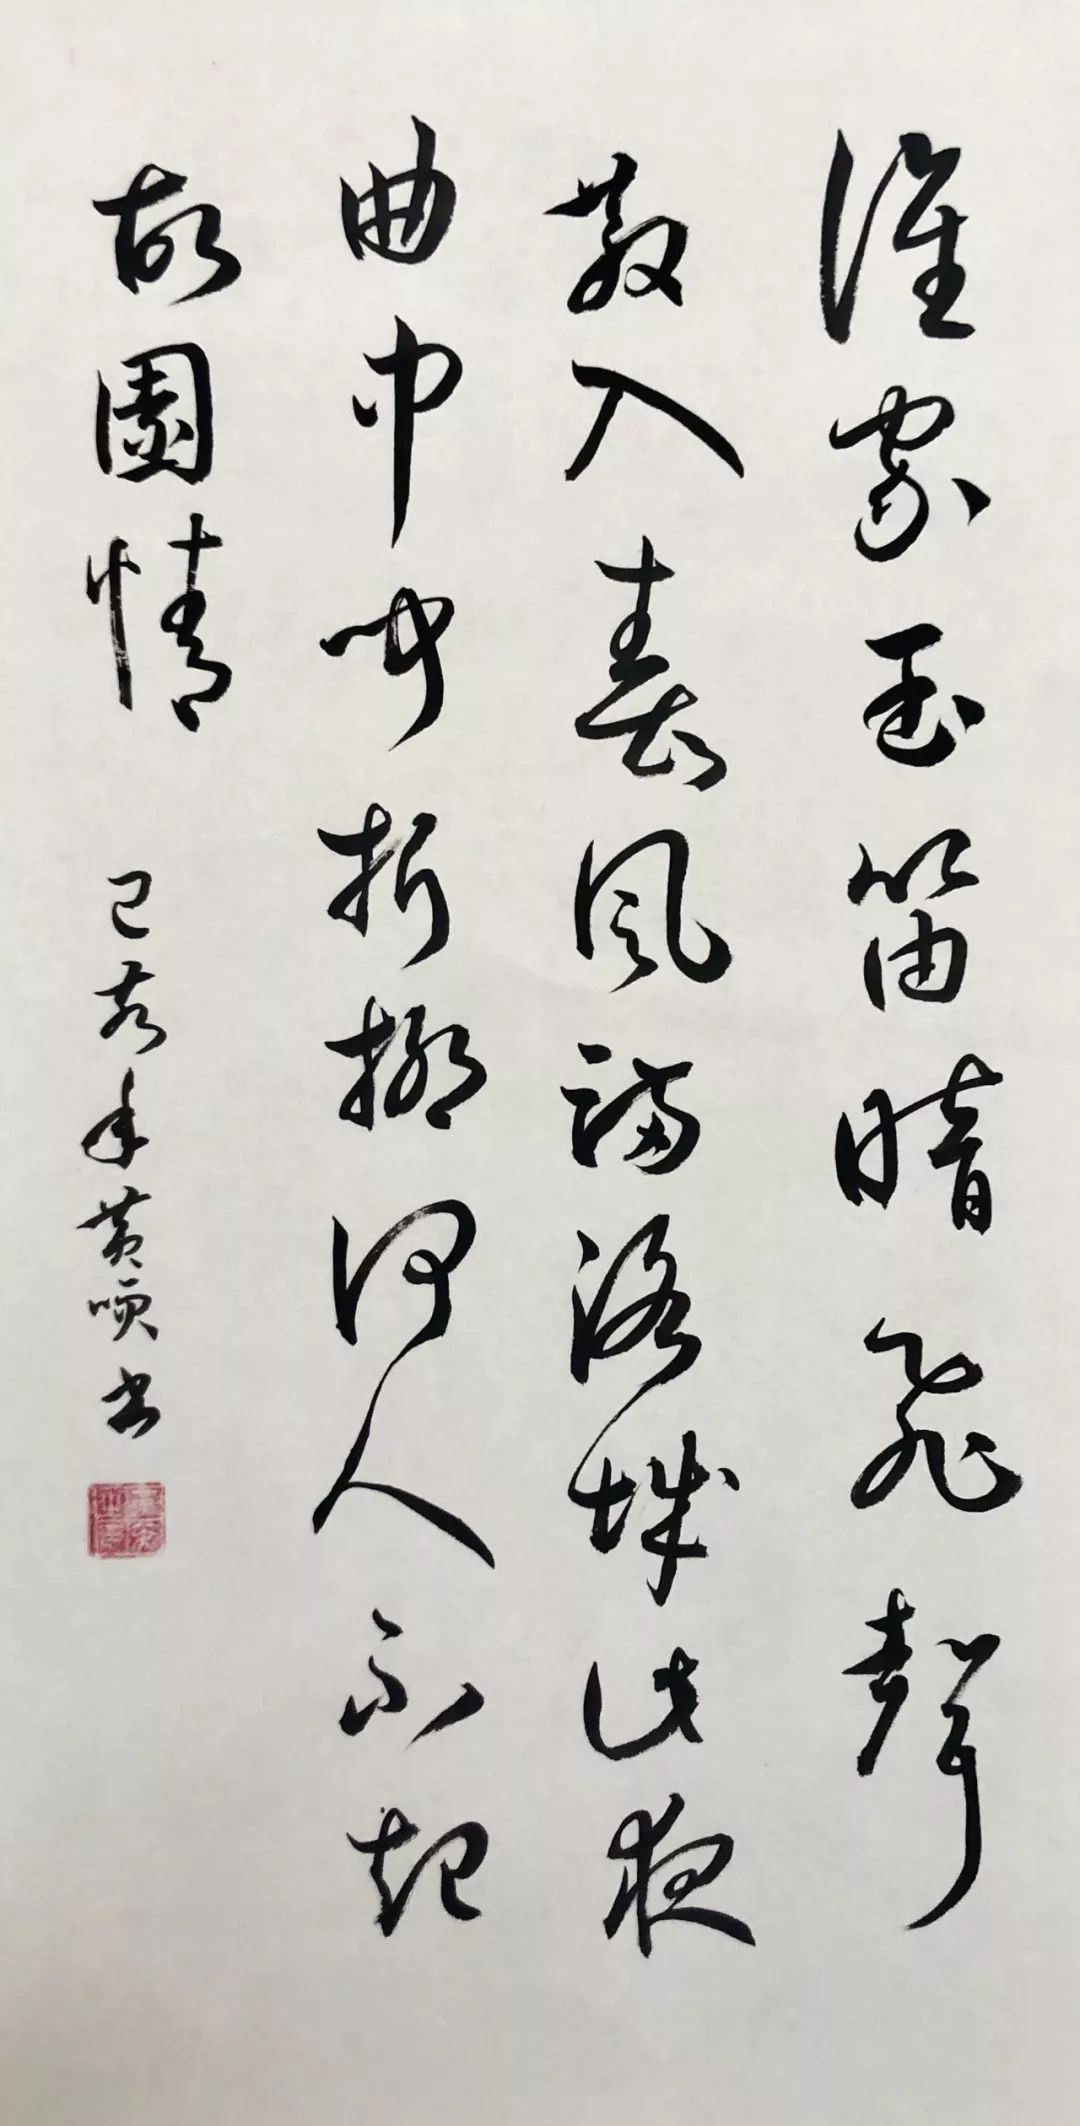 誰家玉笛暗飛聲
散入春風滿洛城此夜
曲中聞折柳何人不起
故園情
己亥年黄喚書